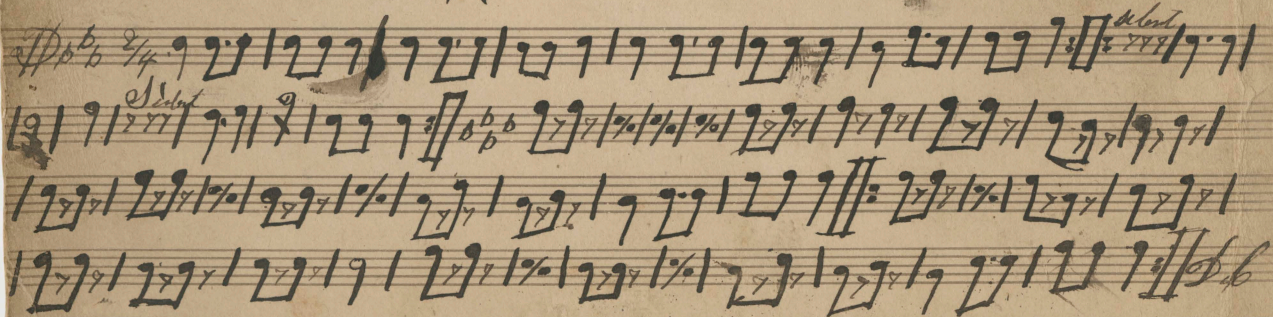 2/4 silent
Silent
D.C